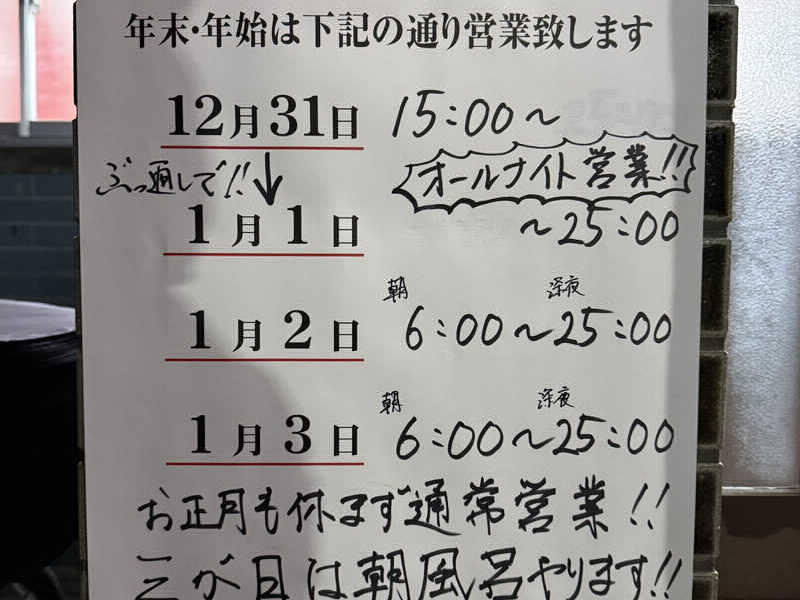 年末・年始は下記の通り営業致します
12月31日 15:00～
ぶっ通しで!!↓ オールナイト営業!!
1月1日 ～25:00
朝 深夜
1月2日 6:00～25:00
朝 深夜
1月3日 6:00～25:00
お正月も休まず通常営業!!
三が日は朝風呂やります!!